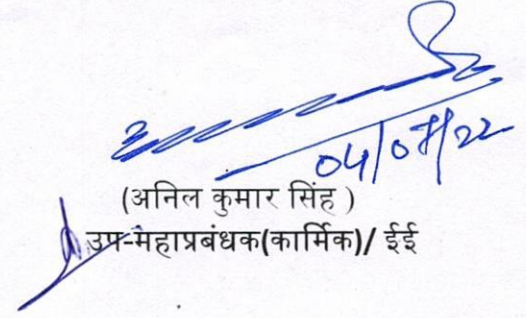 04/07/22
(अनिल कुमार सिंह )
उप-महाप्रबंधक(कार्मिक)/ ईई